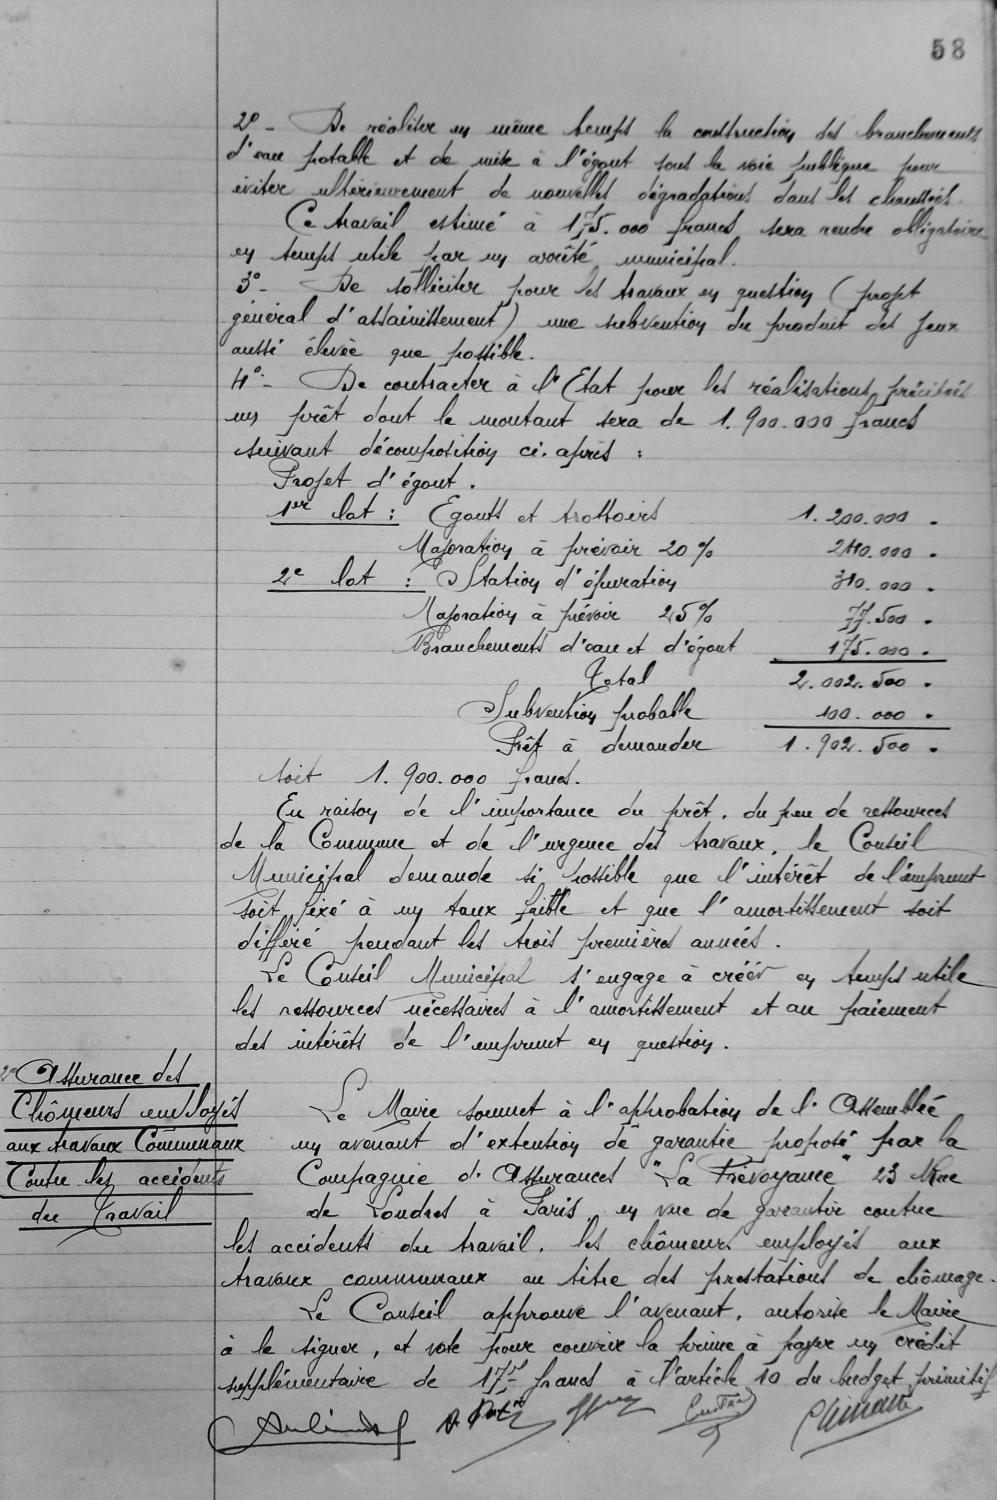 58
2º - De réaliser en même temps la construction des branchements
d'eau potable et de mise à l'égout sous la voie publique pour
éviter ultérieurement de nouvelles dégradations dans les chaussées.
Ce travail estimé à 175.000 francs sera rendu obligatoire
en temps utile par un arrêté municipal.
3º - De solliciter pour les travaux en question (projet
général d'assainissement) une subvention du produit des jeux
aussi élevée que possible.
4º - De contracter à l'Etat pour les réalisations précitées
un prêt dont le montant sera de 1.900.000 francs
suivant décomposition ci-après :
Projet d'égout.
1er lot : Egouts et trottoirs 1.200.000 .
Majoration à prévoir 20% 240.000 .
2e lot : Station d'épuration 310.000 .
Majoration à prévoir 25% 77.500 .
Branchements d'eau et d'égout 175.000 .
Total 2.002.500 .
Subvention probable 100.000 .
Prêt à demander 1.902.500 .
soit 1.900.000 francs.
En raison de l'importance du prêt, du peu de ressources
de la Commune et de l'urgence des travaux, le Conseil
Municipal demande si possible que l'intérêt de l'emprunt
soit fixé à un taux faible et que l'amortissement soit
différé pendant les trois premières années.
Le Conseil Municipal s'engage à créér en temps utile
les ressources nécessaires à l'amortissement et au paiement
des intérêts de l'emprunt en question.
2º Assurance des
Chômeurs employés
aux travaux Communaux
Contre les accidents
du Travail
Le Maire soumet à l'approbation de l'Assemblée
un avenant d'extention de garantie proposé par la
Compagnie d'Assurances "La Prévoyance" 23 Rue
de Londres à Paris, en vue de garantir contre
les accidents du travail, les chômeurs employés aux
travaux communaux au titre des prestations de chômage.
Le Conseil approuve l'avenant, autorise le Maire
à le signer, et vote pour couvrir la prime à payer un crédit
supplémentaire de francs à l'article 10 du budget primitif